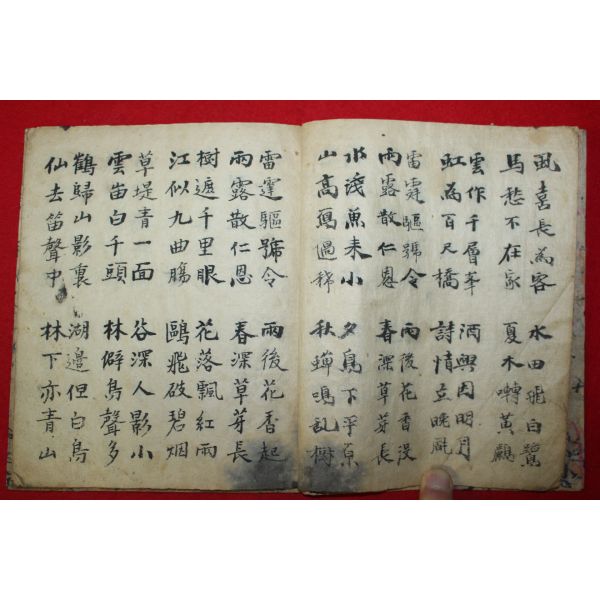 喜長為客 水田飛白鷺
馬愁不在家 夏木囀黃鸝
雲作千層峯 酒興因明月
虹為百尺橋 詩情立晚風
雷霆驅號令 雨後花香
雨露散仁恩 春深草芽長
水淺魚未小 夕鳥下平原
山高鳥過稀 秋蟬鳴亂樹
雷霆驅號令 雨後花香起
雨露散仁恩 春深草芽長
樹遮千里眼 花落飄紅雨
江似九曲腸 鷗飛破碧烟
草堤青一面 谷深人影小
雲白千頭 林僻鳥聲多
鶴歸山影裏 湖邊但白鳥
仙去笛聲中 林下亦青山